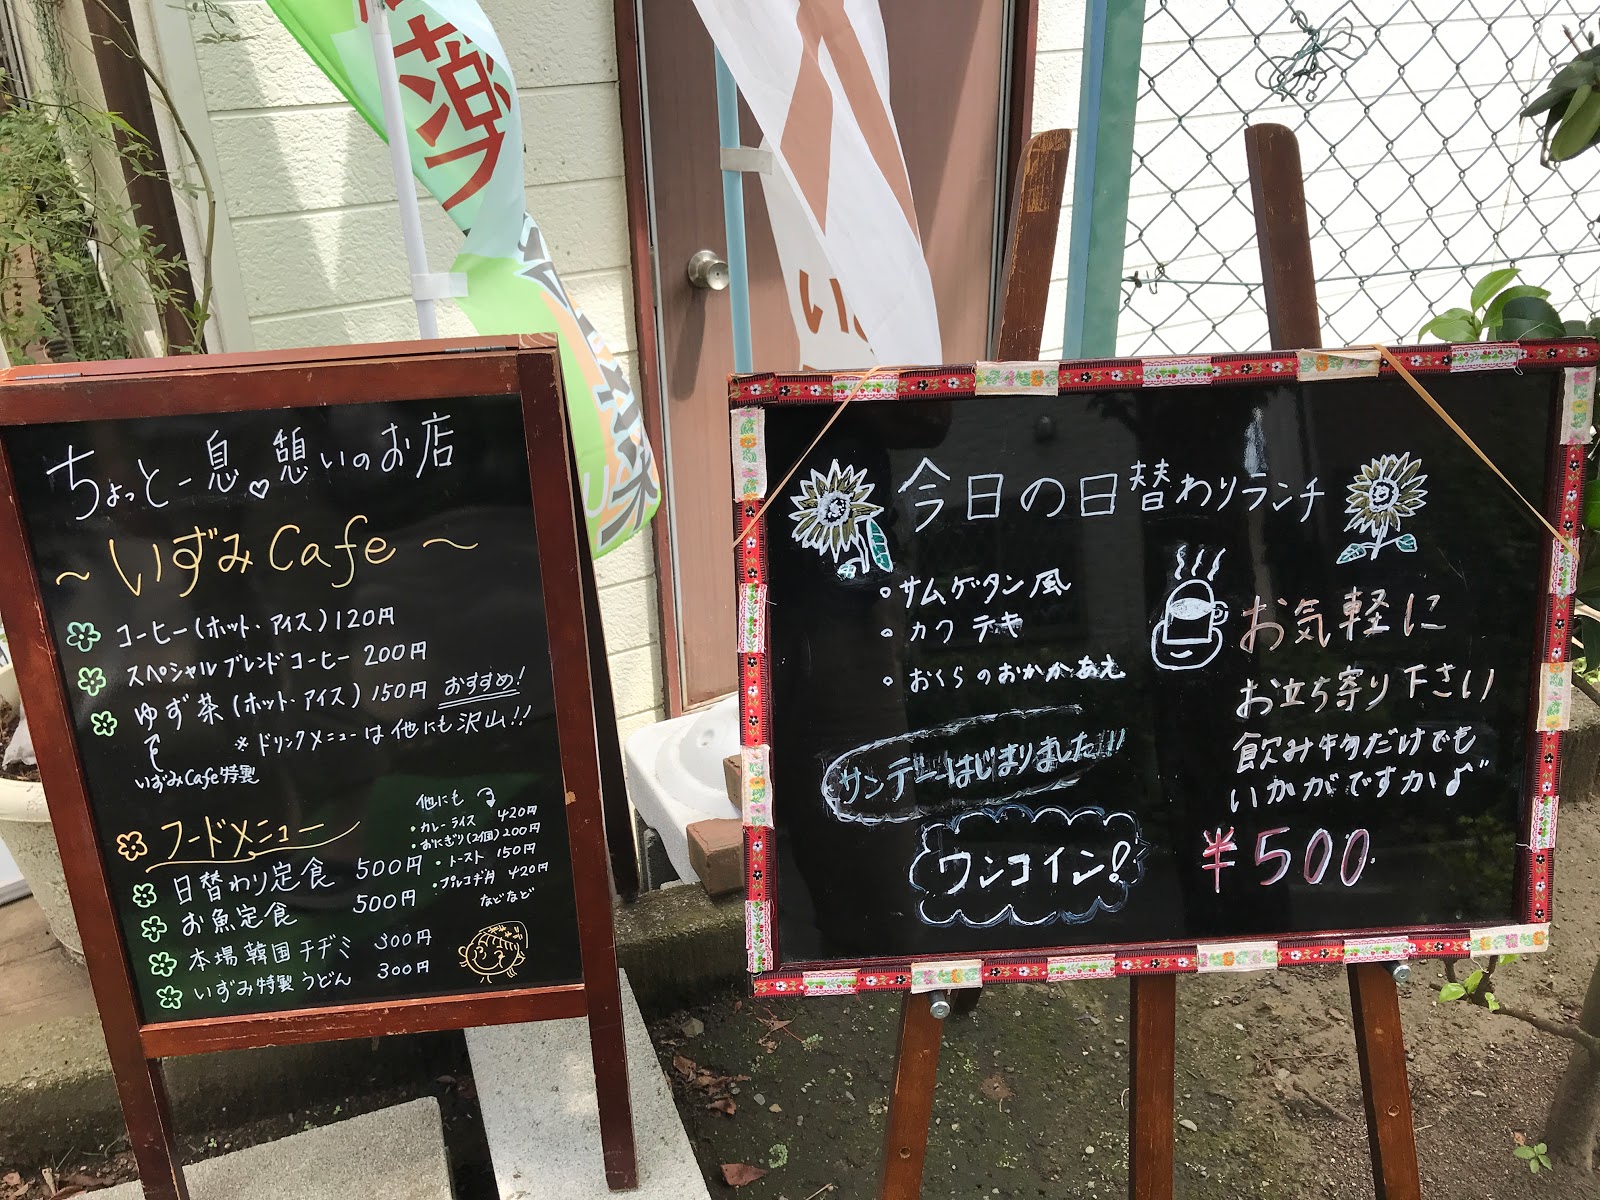 ちょっと一息♡憩いのお店
～いずみCafe～
コーヒー(ホット・アイス)120円
スペシャルブレンドコーヒー 200円
ゆず茶(ホット・アイス)150円 おすすめ!
※ドリンクメニューは他にも沢山!!
いずみCafe特製
フードメニュー
日替わり定食 500円
お魚定食 500円
本場韓国チヂミ 300円
いずみ特製うどん 300円
他にも
・カレーライス 420円
・おにぎり(2個)200円
・トースト 150円
・プルコギ丼 420円
などなど
今日の日替わりランチ
サムゲタン風
カクテキ
おくらのおかかあえ
サンデーはじまりました!!!
ワンコイン!
お気軽に
お立ち寄り下さい
飲み物だけでも
いかがですか♪
¥500